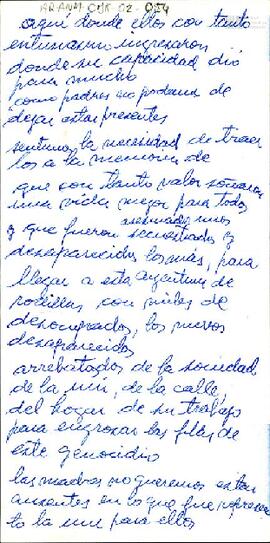 ARANM CHR 02-074
aquí donde ellos con tanto
entusiasmo ingresaron
donde su capacidad dió
para mucho
como padres no podemos de
dejar estar presentes
sentimos la necesidad de traer
los a la memoria de
que con tanto valor soñaron
una vida mejor para todos
asesinados unos
y que fueron secuestrados y
desaparecidos los más, para
llegar a esta argentina de
rodillas con miles de
desocupados, los nuevos
desaparecidos
arrebatados de la sociedad
de la uni, de la calle,
del hogar de su trabajo
para engrosar las filas de
este genocidio
las madres no queremos estar
ausentes en lo que fue represen
to la uni para ellos